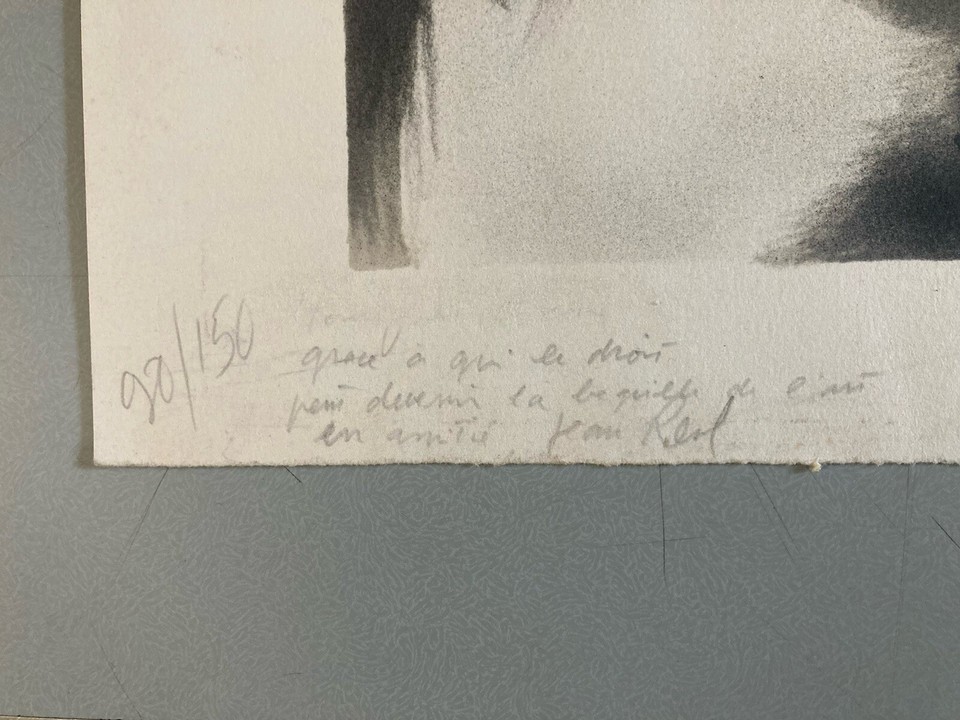 90/150
grace à qui le droit
peut devenir la bequille de l'art
en amitié Jean